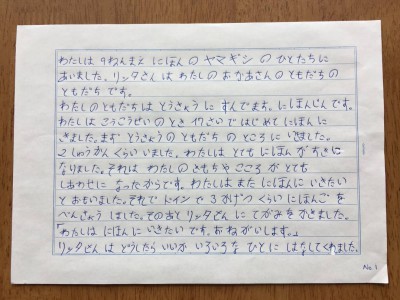 わたしは 9ねんまえ にほん の ヤマギシ の ひとたちに
あいました。リッタさん は わたしの おかあさんの ともだちの
ともだち です。
わたしの ともだちは とうきょう に すんでます。にほんじんです。
わたしは こうこうせいの とき 17さいで はじめて にほんに
きました。まず とうきょうの ともだちの ところに いきました。
2しゅうかん くらい いました。わたしは とても にほんが すきに
なりました。それは わたしの きもちや こころ が とても
しあわせに なったからです。わたしは また にほんに いきたい
と おもいました。それで ドイツ で 3かげつ くらい にほんご を
べんきょう しました。そのあと リッタさん に てがみを かきました。
「わたしは にほんに いきたい です。おねがいします。」
リッタさんは どうしたら いいか いろいろな ひと に はなしてくれました。
No.1